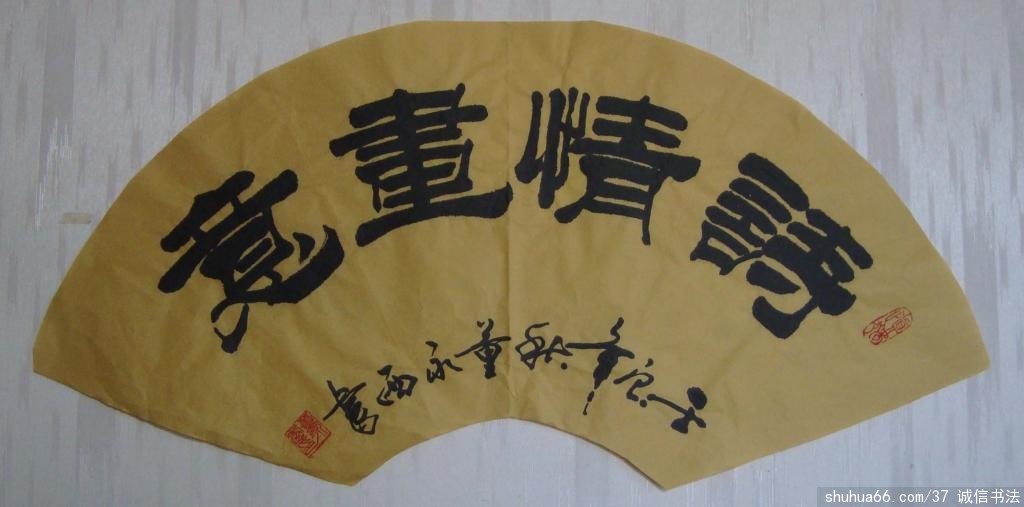 詩情畫意
年秋董永西書
shuhua66.com/37 诚信书法